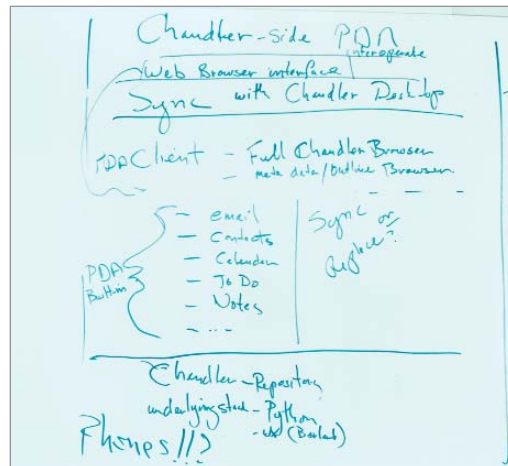 Chandler-side PDA
interoperate
Web Browser interface
Sync with Chandler Desktop
PDA Client - Full Chandler Browser
- meta data/Outline Browser
- email
- Contacts
- Calendar
- To Do
- Notes
- ...
PDA
Built in
Sync or
Replace?
Chandler - Repository
underlying stack - Python
- wx
Phones!!?